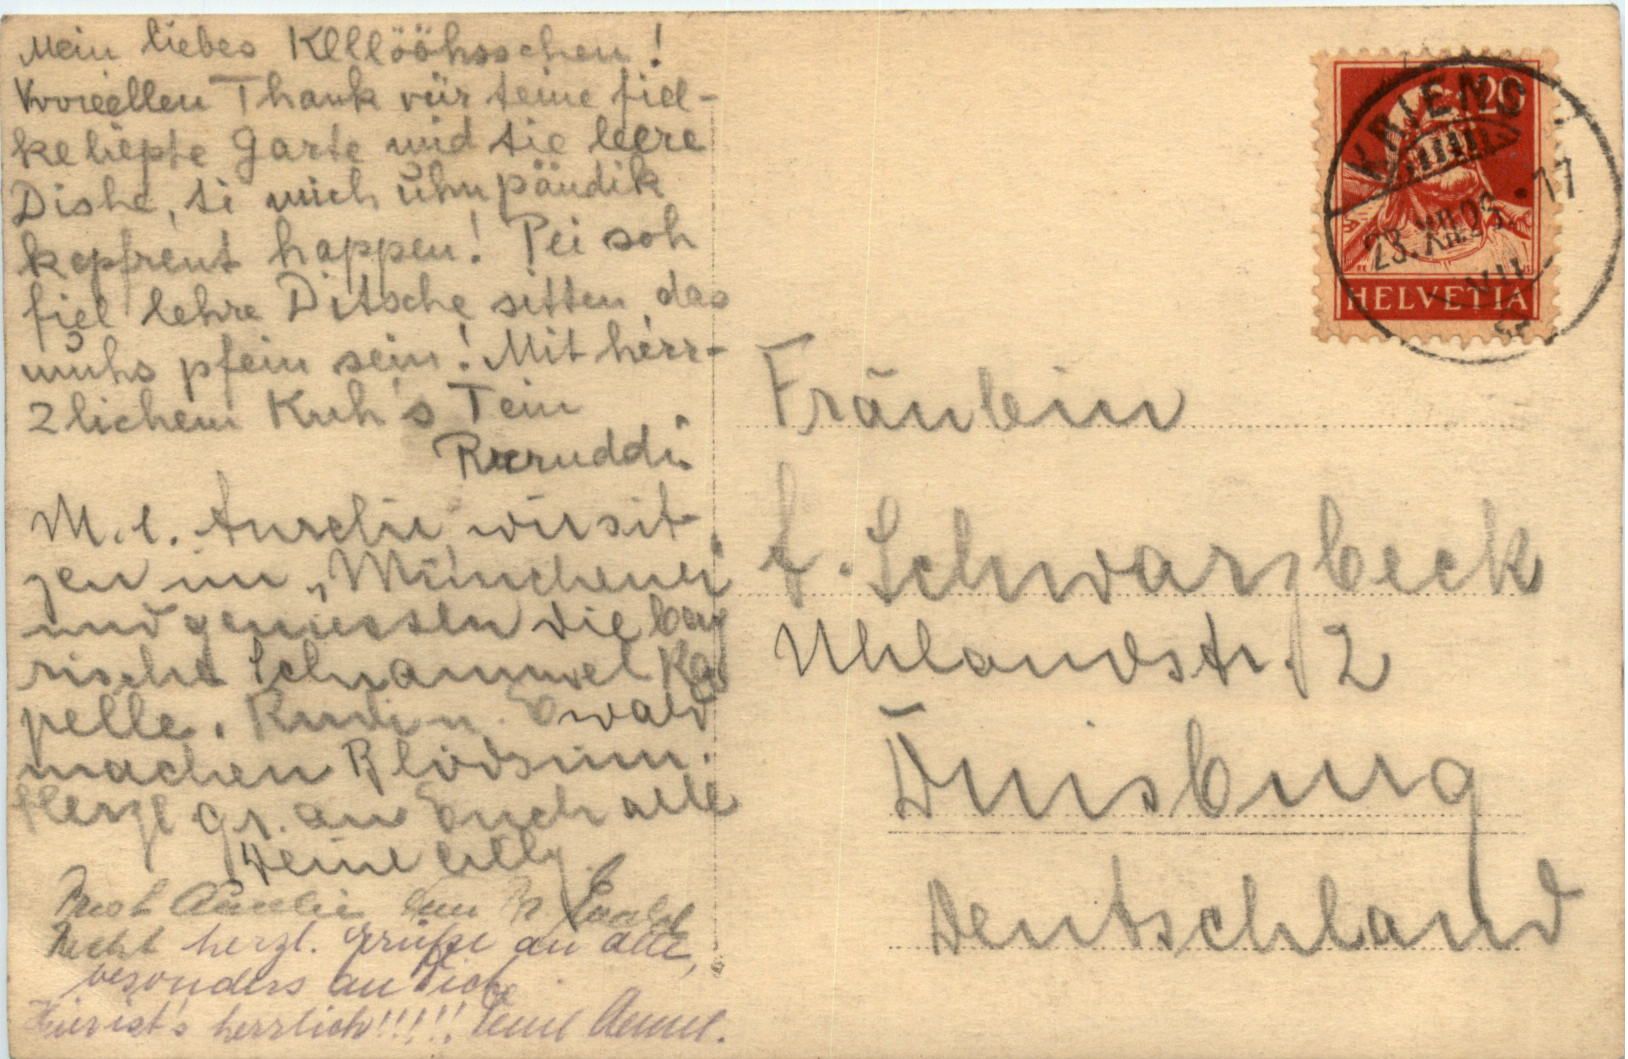 Mein liebes Klllööhsschen!
Vvvieellen Thank vür teine fiel-
keliepte Garte und tie leere
Dishe, ti mich uhnpändik
kepfreut happen! Pei soh
fiel lehre Ditsche sitten, das
muhs pfein sein! Mit herr-
zlichem Kuh's Tein
Ruruddi.
M. l. Aurelie wir sit
zen im "Münchener
und geniessen die bay
rische Schrammel Ka
pelle. Rudi u. Ewald
machen Blödsinn.
Herzl gr. an Euch alle
Deine Cilly.
Prost Aurelie Dein Ewald
Recht herzl. Grüße an alle,
besonders an Dich
Hier ist's herrlich!!!!!
KRIENS
20
23.XII.29.-17
VII
HELVETIA
Fräulein
A. Schwarzbeck
Uhlandstr. 2
Duisburg
Deutschland